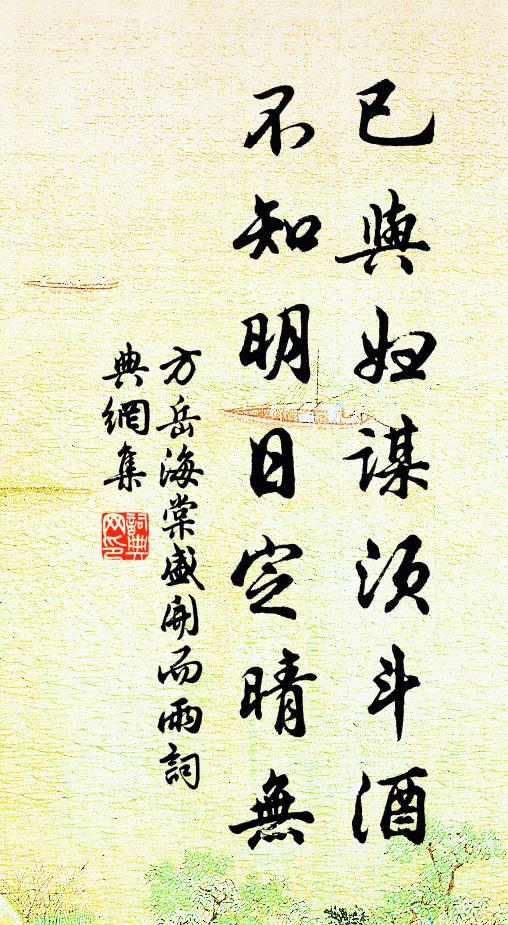 已與妇謀須斗酒
不知明日定晴無
方岳海棠盛開而雨詞
典網集
詞典
网印